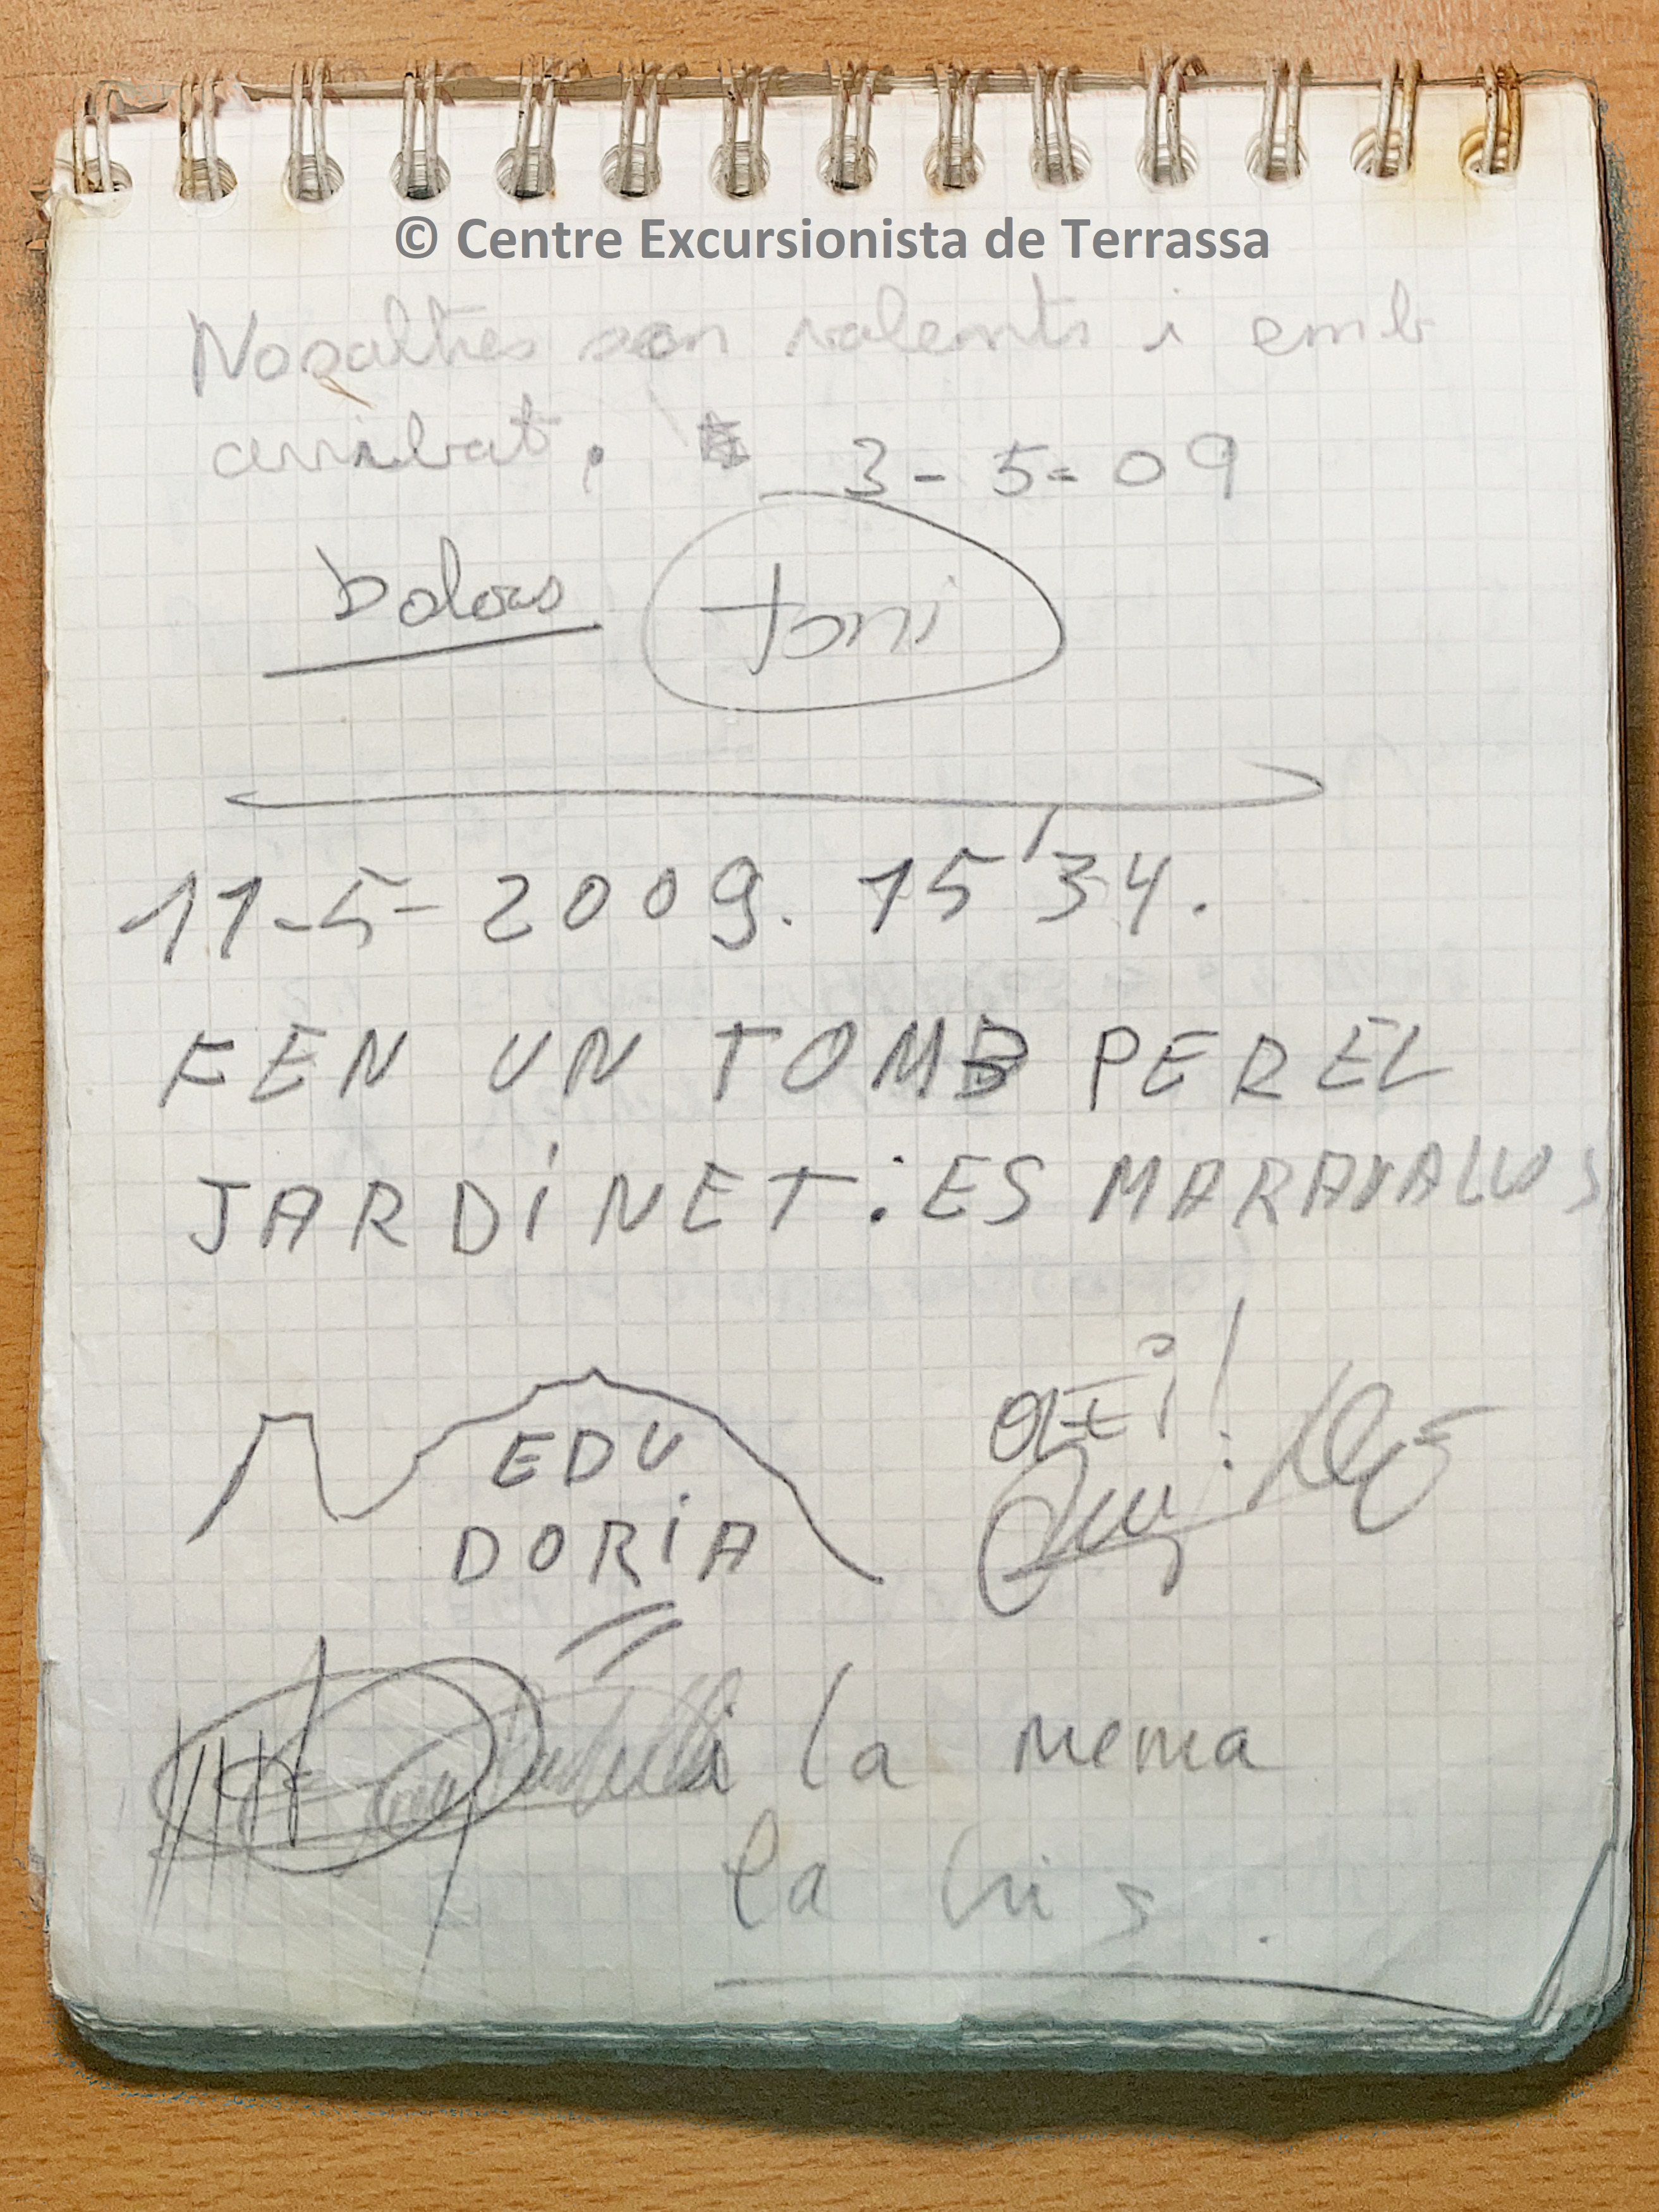 © Centre Excursionista de Terrassa
Nosaltres son valents i emb
arribat. 3-5-09
Dolors toni
11-5-2009. 15'34.
FEN UN TOMB PER EL
JARDINET: ES MARAVALLOS
EDU
DORIA
i la nena
la Cris.